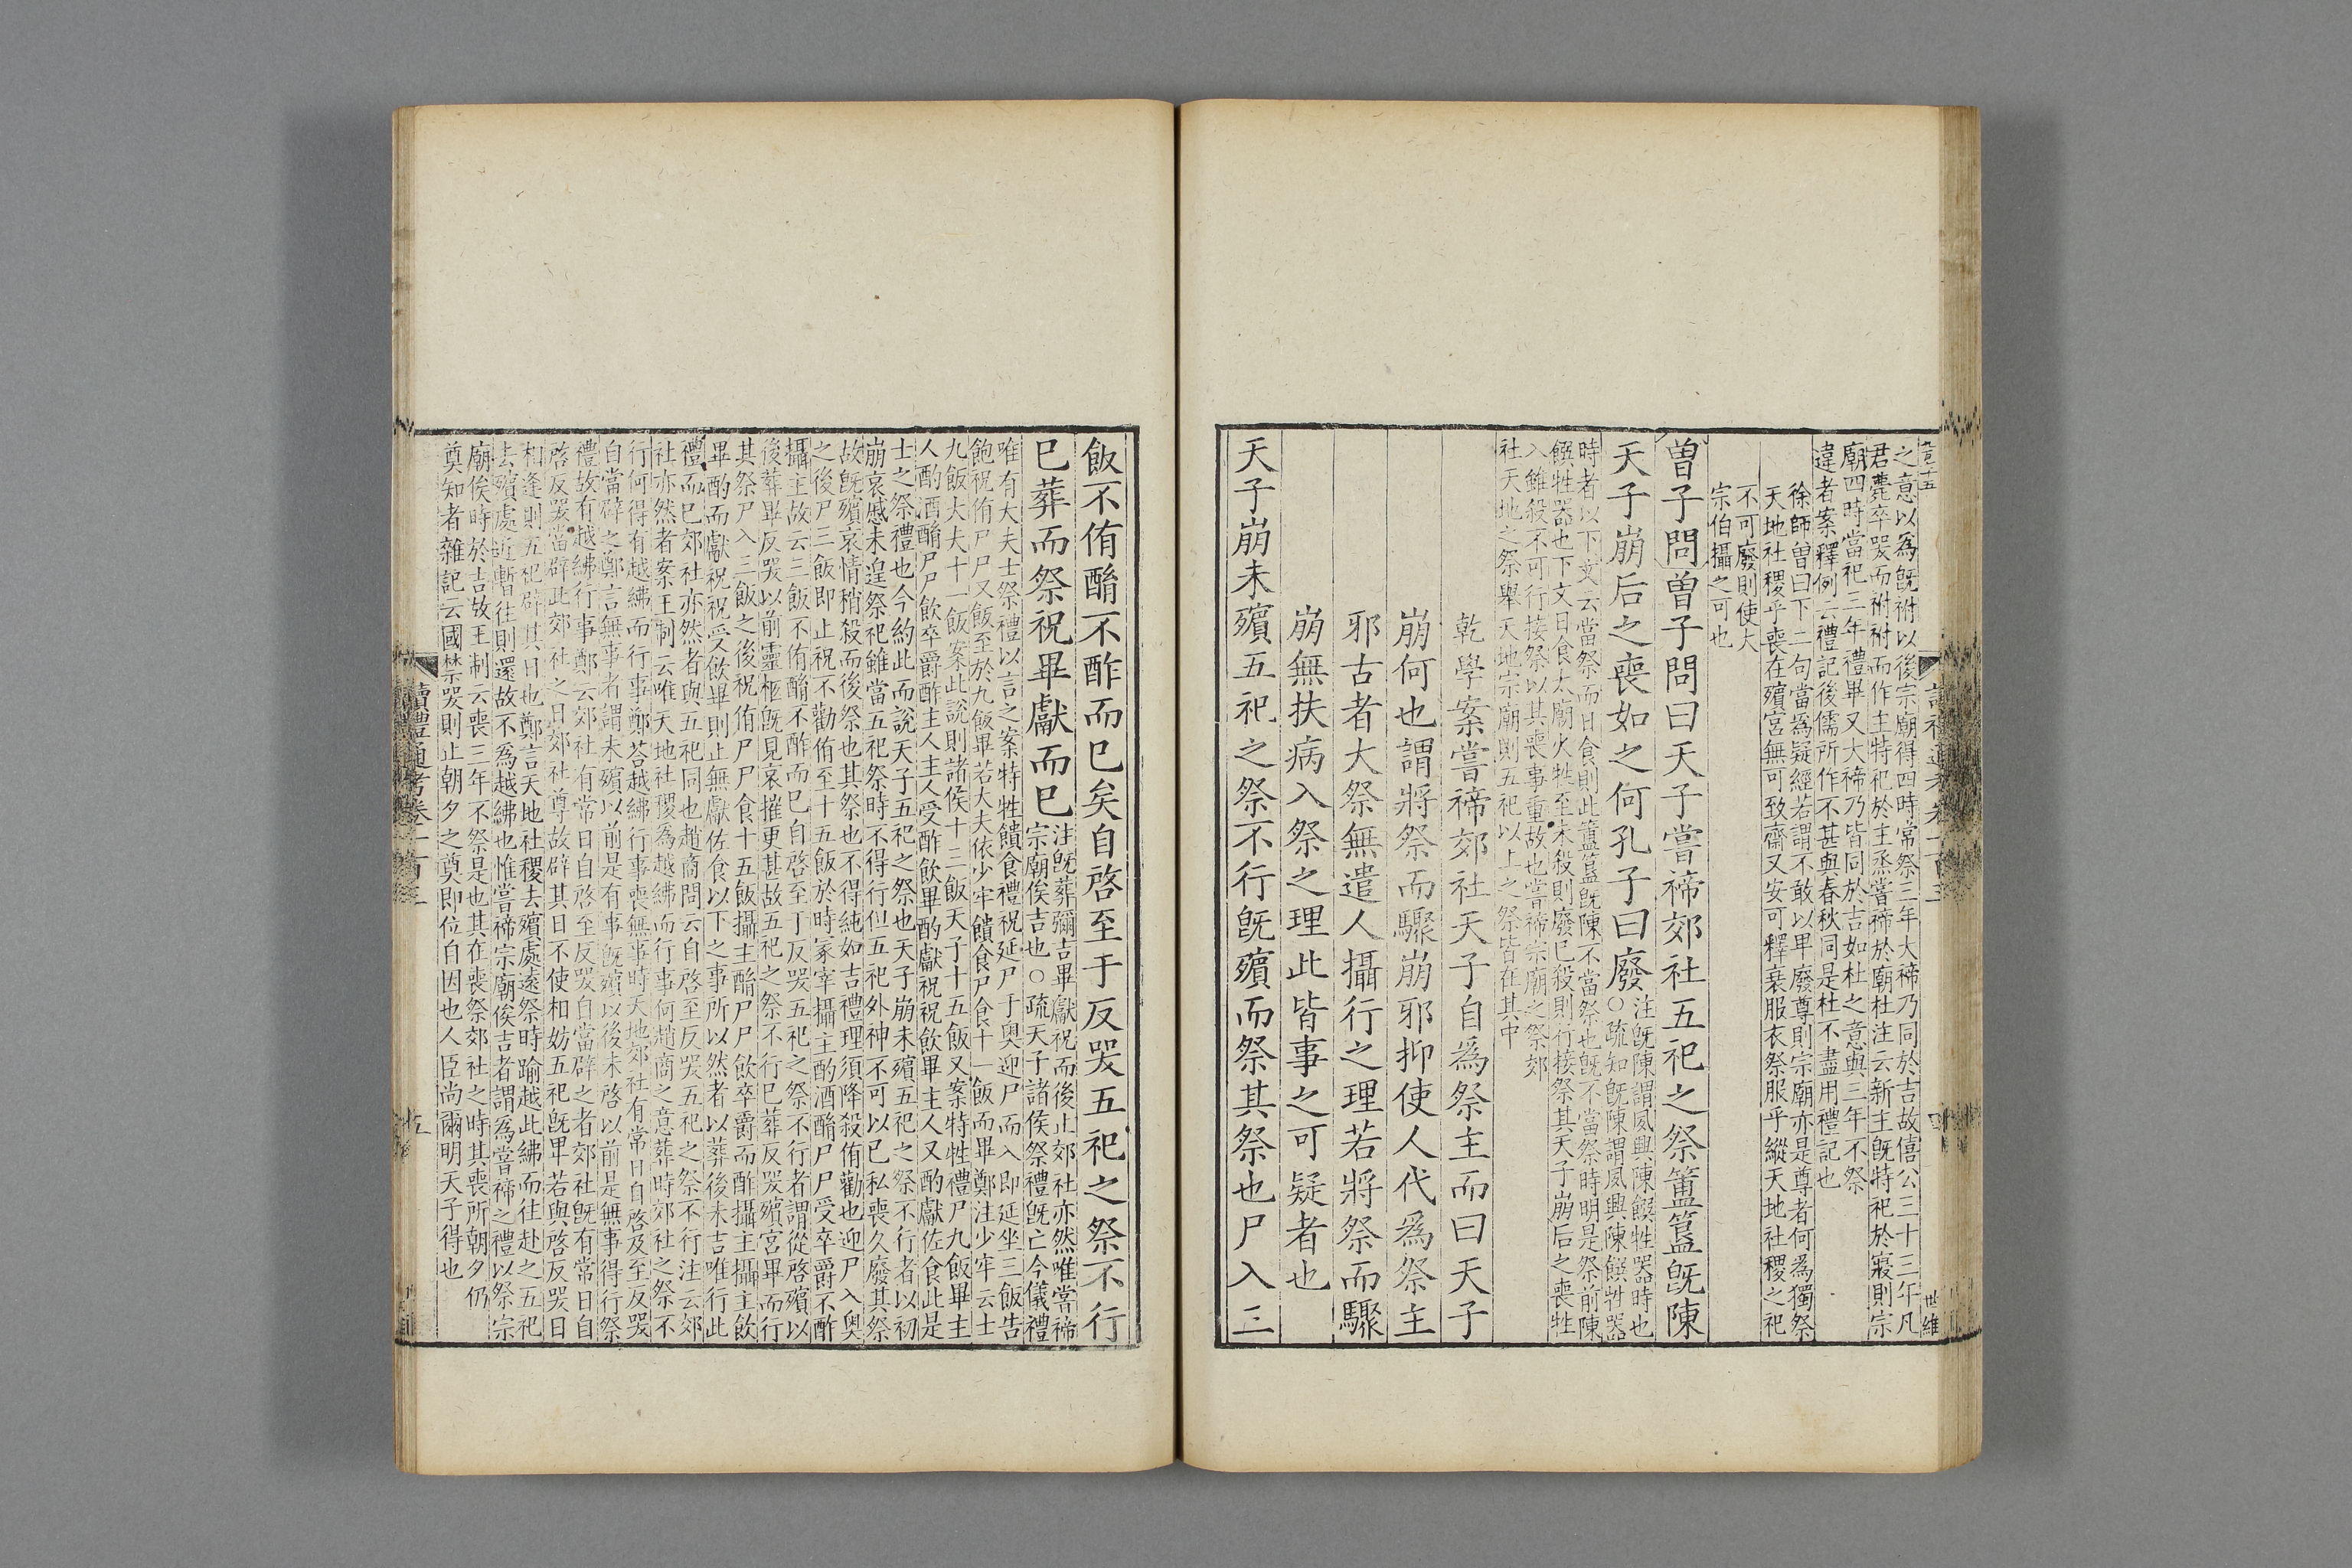 之意以爲旣祔以後宗廟得四時常祭三年大禘乃同於吉故僖公三十三年凡
君薨卒哭而祔祔而作主特祀於主烝嘗禘於廟杜注云新主旣特祀於寢則宗
廟四時當祀三年禮畢又大禘乃皆同於吉如杜之意與三年不祭
違者案釋例云禮記後儒所作不甚與春秋同是杜不盡用禮記也
徐師曾曰下二句當爲疑經若謂不敢以卑廢尊則宗廟亦是尊者何爲獨祭
天地社稷乎喪在殯宮無可致齋又安可釋衰服衣祭服乎縱天地社稷之祀
不可廢則使大
宗伯攝之可也
曾子問曾子問曰天子嘗禘郊社五祀之祭簠簋旣陳
天子崩后之喪如之何孔子曰廢
注旣陳謂夙興陳饌牲器時也
○疏知旣陳謂夙興陳饌牲器
時者以下文云當祭而日食則此簠簋旣陳不當祭也旣不當祭時明是祭前陳
饌牲器也下文日食太廟火牲至未殺則廢已殺則行接祭其天子崩后之喪牲
入雖殺不可行接祭以其喪事重故也嘗禘宗廟之祭郊
社天地之祭舉天地宗廟則五祀以上之祭皆在其中
乾學案嘗禘郊社天子自爲祭主而曰天子
崩何也謂將祭而驟崩邪抑使人代爲祭主
邪古者大祭無遣人攝行之理若將祭而驟
崩無扶病入祭之理此皆事之可疑者也
天子崩未殯五祀之祭不行旣殯而祭其祭也尸入三
飯不侑酳不酢而已矣自啓至于反哭五祀之祭不行
已葬而祭祝畢獻而已
注旣葬彌吉畢獻祝而後止郊社亦然唯嘗禘
宗廟俟吉也○疏天子諸侯祭禮旣亡今儀禮
唯有大夫士祭禮以言之案特牲饋食禮祝延尸于奧迎尸而入即延坐三飯告
飽祝侑尸尸又飯至於九飯畢若大夫依少牢饋食尸食十一飯而畢鄭注少牢云士
九飯大夫十一飯案此說則諸侯十三飯天子十五飯又案特牲禮尸九飯畢主
人酌酒酳尸尸飲卒爵酢主人主人受酢飲畢酌獻祝祝飲畢主人又酌獻佐食此是
士之祭禮也今約此而說天子五祀之祭也天子崩未殯五祀之祭不行者以初
崩哀慼未遑祭祀雖當五祀祭時不得行但五祀外神不可以已私喪久廢其祭
故旣殯哀情稍殺而後祭也其祭也不得純如吉禮理須降殺侑勸也迎尸入奧
之後尸三飯即止祝不勸侑至十五飯於時冢宰攝主酌酒酳尸尸受卒爵不酢
攝主故云三飯不侑酳不酢而已自啓至于反哭五祀之祭不行者謂從啓殯以
後葬畢反哭以前靈柩旣見哀摧更甚故五祀之祭不行已葬反哭殯宮畢而行
其祭尸入三飯之後祝侑尸尸食十五飯攝主酳尸尸飲卒爵而酢攝主攝主飲
畢酌而獻祝祝受飲畢則止無獻佐食以下之事所以然者以葬後未吉唯行此
禮而已郊社亦然者與五祀同也趙商問云自啓至反哭五祀之祭不行注云郊
社亦然者案王制云唯天地社稷為越紼而行事何趙商之意葬時郊社之祭不
行何得有越紼而行事鄭荅越紼行事喪無事時天地郊社有常日自啓及至反哭
自當辟之鄭言無事者謂未殯以前是有事旣殯以後未啓以前是無事得行祭
禮故有越紼行事鄭云郊社有常日自啓至反哭自當辟之者郊社旣有常日自
啓反哭當辟此郊社之日郊社尊故辟其日不使相妨五祀旣卑若與啓反哭日
相逢則五祀辟其日也鄭言天地社稷去殯處遠祭時踰越此紼而往赴之五祀
去殯處近暫往則還故不為越紼也惟嘗禘宗廟俟吉者謂為嘗禘之禮以祭宗
廟俟時於吉故王制云喪三年不祭是也其在喪祭郊社之時其喪所朝夕仍
奠知者雜記云國禁哭則止朝夕之奠即位自因也人臣尚爾明天子得也
讀禮通考卷一百三